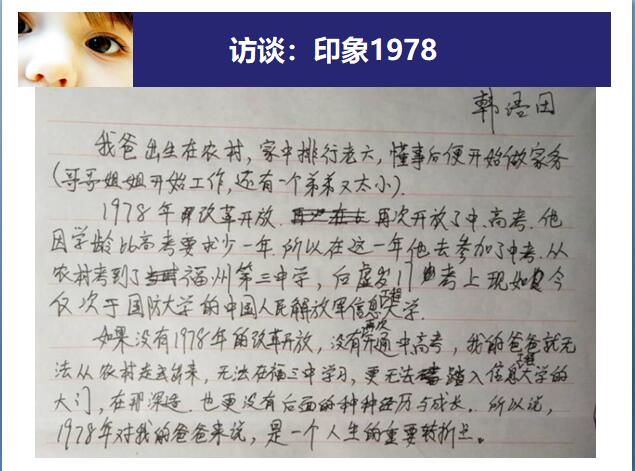 访谈：印象1978
韩语田
我爸出生在农村，家中排行老六，懂事后便开始做家务
（哥哥姐姐开始工作，还有一个弟弟又太小）.
1978年改革开放. 再次开放了中、高考. 他
因学龄比高考要求少一年. 所以在这一年他去参加了中考. 从
农村考到了福州第三中学，白虚岁17考上现如今
仅次于国防大学的中国人民解放军信息工程大学.
如果没有1978年的改革开放，没有再次开通中高考，我的爸爸就无
法从农村走出来，无法在福三中学习，更无法踏入信息工程大学的
大门，在那深造. 也更没有后面的种种经历与成长. 所以说，
1978年对我的爸爸来说，是一个人生的重要转折点。